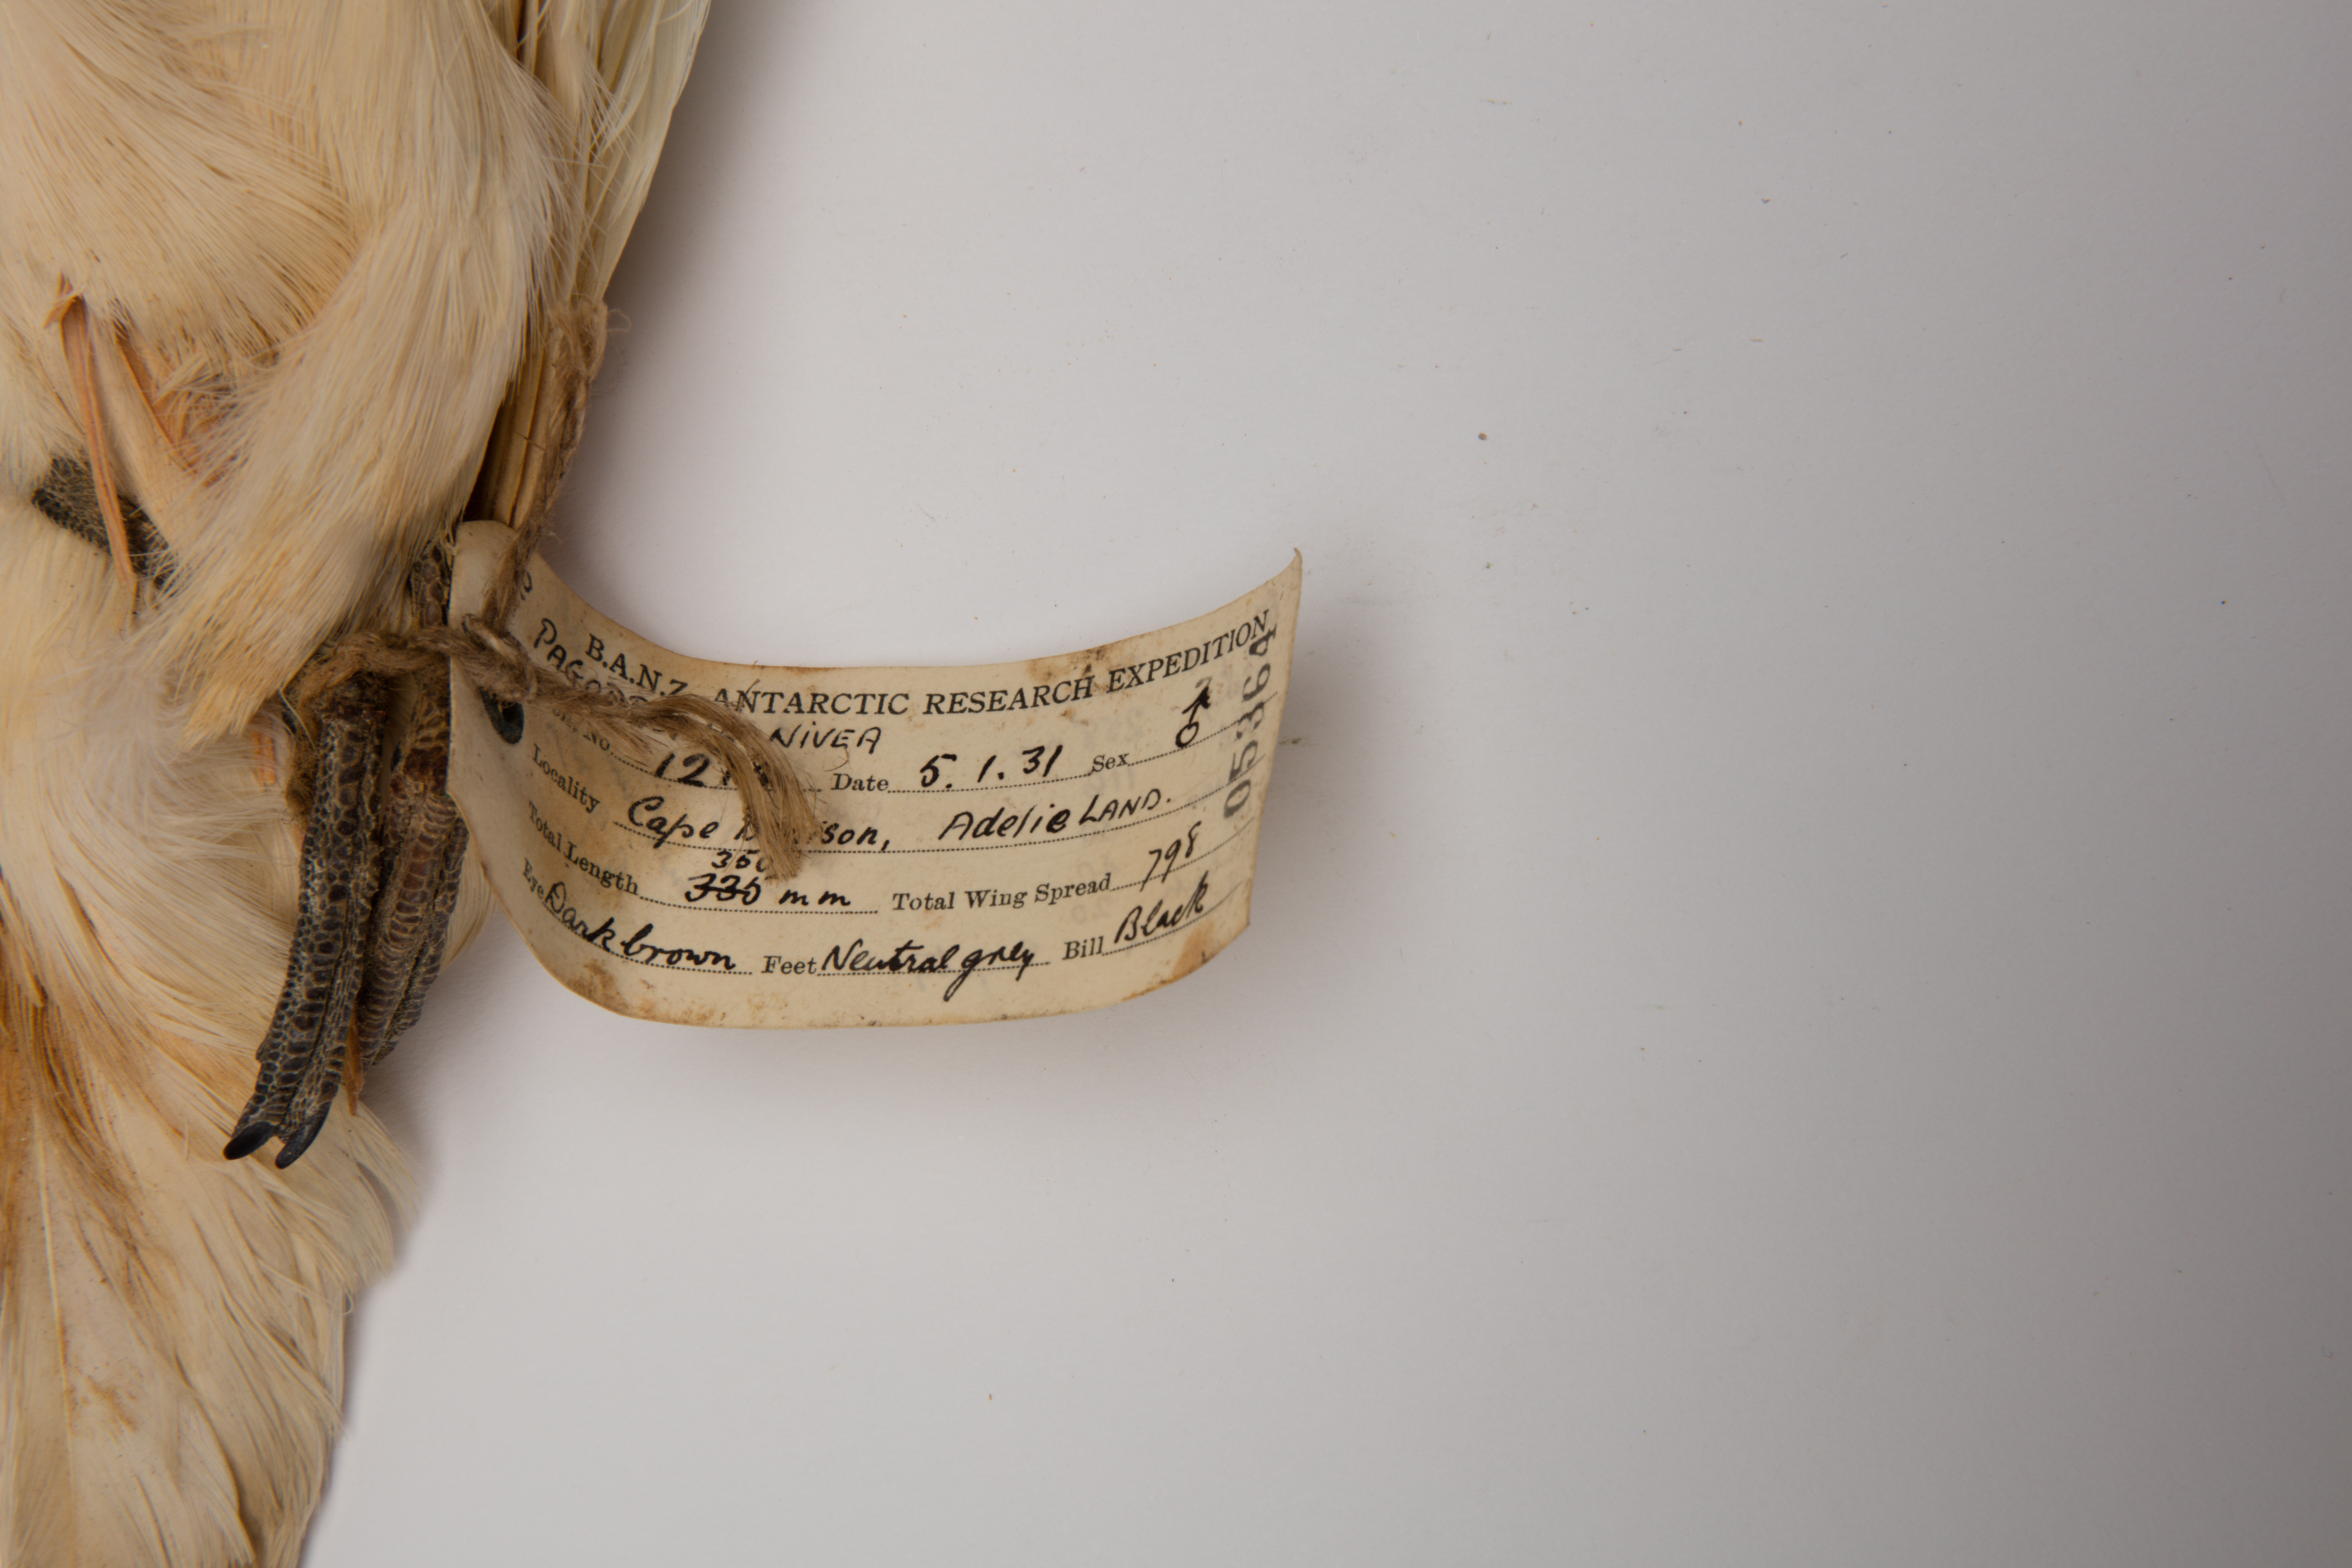 B.A.N.Z. ANTARCTIC RESEARCH EXPEDITION
NIVEA
No. Date 5.1.31 Sex ♂
Locality Cape Adelie LAND.
350
Total Length 335 mm Total Wing Spread 798
Eye Dark brown Feet Neutral grey Bill Black
053364